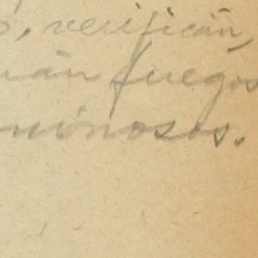 verificán,
fuegos
minosos.